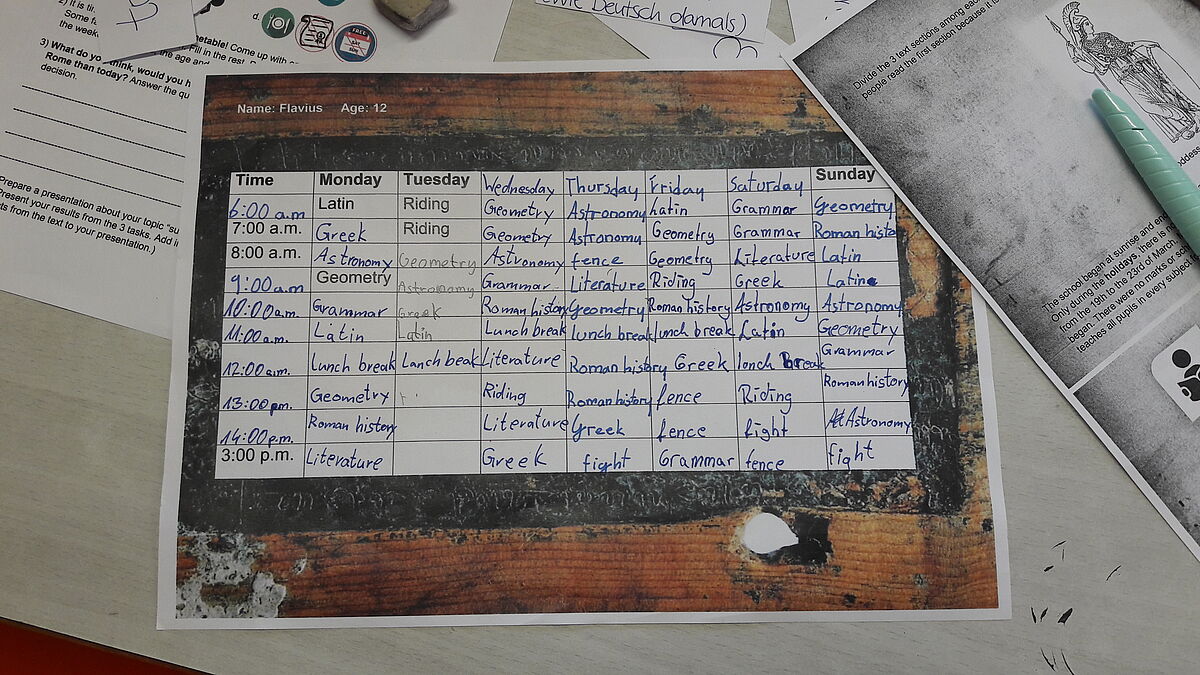 (wie Deutsch damals)
2) It is
Some fa
the weeke
d.
FREE
metable! Come up with
Fill in the rest.
the age and
3) What do you think, would you h
Rome than today? Answer the qu
decision.
Prepare a presentation about your topic "su
Present your results from the 3 tasks. Add i
ts from the text to your presentation.)
Divide the 3 text sections among eac
people read the first section because it is
The school began at sunrise and en
Only during the holidays, there is n
from the right to the 23rd of March
began. There were no marks or scho
teaches all pupils in every subject
Name: Flavius Age: 12
Time Monday Tuesday Wednesday Thursday Friday Saturday Sunday
6:00 a.m Latin Riding Geometry Astronomy Latin Grammar Geometry
7:00 a.m. Greek Riding Geometry Astronomy Geometry Grammar Roman histo
8:00 a.m. Astronomy Geometry Astronomy fence Geometry Literature Latin
9:00 a.m Geometry Astronomy Grammar Literature Riding Greek Latin
10:00a.m. Grammar Greek Roman history Geometry Roman history Astronomy Astronomy
11:00a.m. Latin Latin Lunch break lunch break lunch break Latin Geometry
12:00a.m. Lunch break Lanch beak Literature Roman history Greek lonch break Grammar
13:00pm. Geometry Riding Roman history fence Riding Roman history
14:00p.m. Roman history Literature Greek fence fight Astronomy
3:00 p.m. Literature Greek fight Grammar fence fight